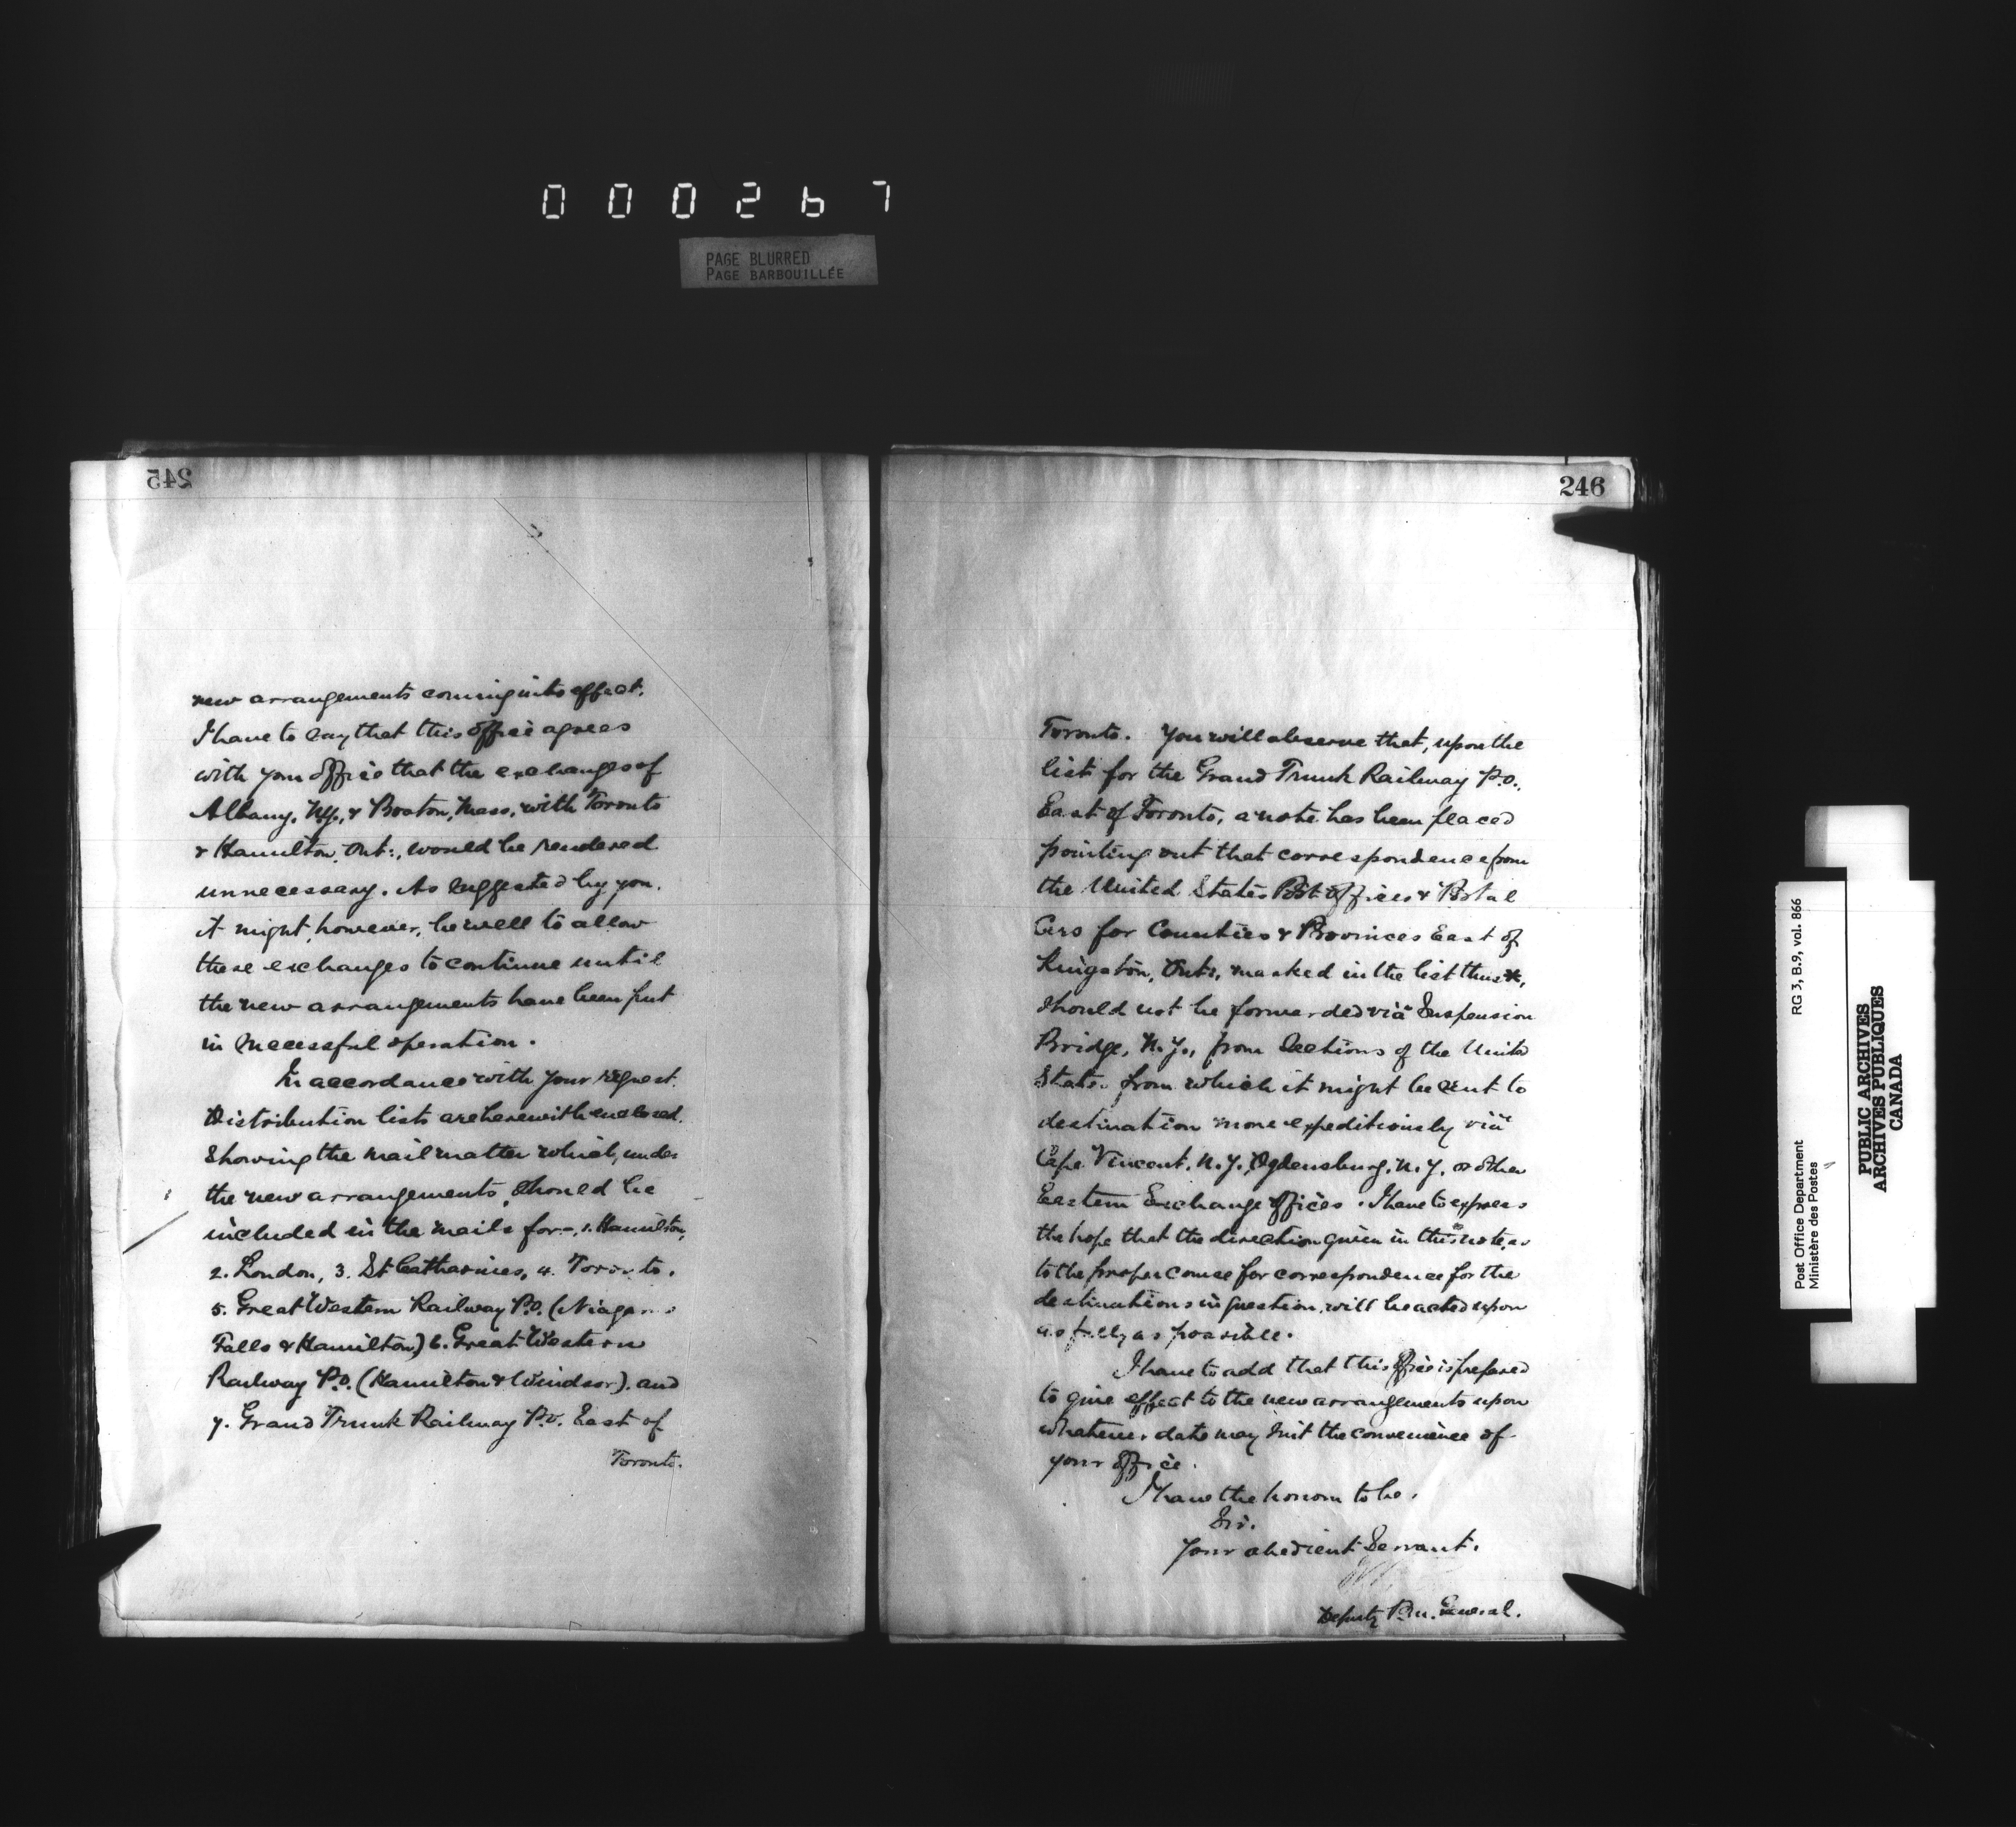 000267
PAGE BLURRED
PAGE BARBOUILLÉE
245
new arrangements coming into effect.
I have to say that this office agrees
with your office that the exchanges of
Albany, N.Y., & Boston, Mass. with Toronto
& Hamilton, Ont:, would be rendered
unnecessary. As suggested by you,
it might, however, be well to allow
these exchanges to continue until
the new arrangements have been put
in successful operation.
In accordance with your request.
Distribution lists are herewith enclosed.
Showing the mail matter which, under
the new arrangements, should be
included in the mails for-, 1. Hamilton,
2. London, 3. St Catharines, 4. Toronto.
5. Great Western Railway P.O. (Niagara
Falls & Hamilton) 6. Great Western
Railway P.O. (Hamilton & Windsor). and
7. Grand Trunk Railway P.O. East of
Toronto.
246
Toronto. You will observe that, upon the
list for the Grand Trunk Railway P.O.,
East of Toronto, a note has been placed
pointing out that correspondence from
the United States Post Offices & Postal
Cars for Counties & Provinces East of
Kingston, Ont:, marked in the list thus *,
should not be forwarded viâ Suspension
Bridge, N.Y., from Sections of the United
States from which it might be sent to
destination more expeditiously viâ
Cape Vincent, N.Y., Ogdensburg, N.Y. or other
Eastern Exchange Offices. I have to express
the hope that the direction given in this note, as
to the proper course for correspondence for the
destinations in question, will be acted upon
as fully as possible.
I have to add that this office is prepared
to give effect to the new arrangements upon
whatever date may suit the convenience of
your office.
I have the honor to be,
Sir.
Your obedient Servant.
Deputy P.M. General.
Post Office Department
Ministère des Postes
RG 3, B.9, vol. 866
PUBLIC ARCHIVES
ARCHIVES PUBLIQUES
CANADA